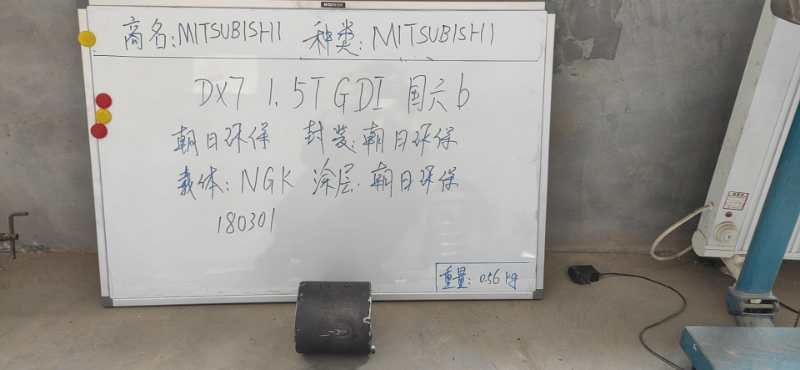 商名:MITSUBISHI 种类:MITSUBISHI
DX7 1.5T GDI 国六b
朝日环保 封装:朝日环保
载体:NGK 涂层:朝日环保
180301
重量:0.56kg